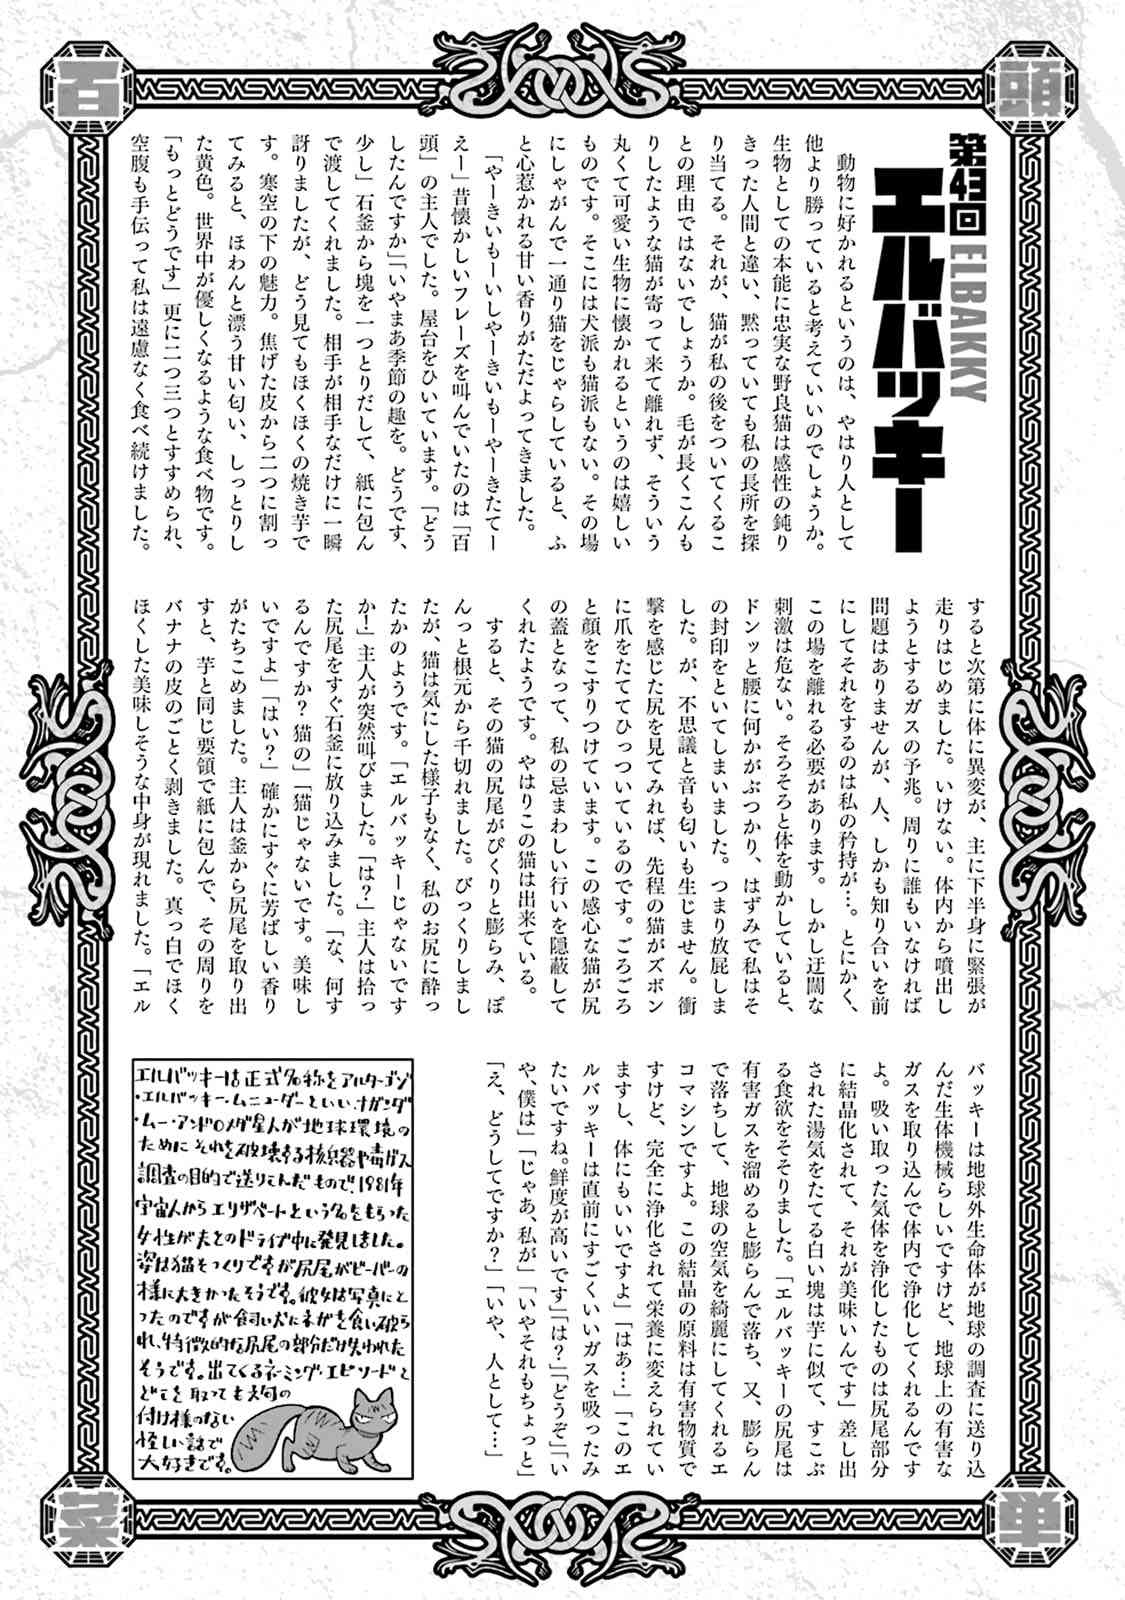 百
頭
第43回
エルバッキー
ELBAKKY
動物に好かれるというのは、やはり人として
他より勝っていると考えていいのでしょうか。
生物としての本能に忠実な野良猫は感性の鈍り
きった人間と違い、黙っていても私の長所を探
り当てる。それが、猫が私の後をついてくるこ
との理由ではないでしょうか。毛が長くこんも
りしたような猫が寄って来て離れず、そういう
丸くて可愛い生物に懐かれるというのは嬉しい
ものです。そこには犬派も猫派もない。その場
にしゃがんで一通り猫をじゃらしていると、ふ
と心惹かれる甘い香りがただよってきました。
「やーきいもーいしやーきいもーやーきたてー
えー」昔懐かしいフレーズを叫んでいたのは「百
頭」の主人でした。屋台をひいています。「どう
したんですか」「いやまあ季節の趣を。どうです、
少し」石釜から塊を一つとりだして、紙に包ん
で渡してくれました。相手が相手なだけに一瞬
訝りましたが、どう見てもほくほくの焼き芋で
す。寒空の下の魅力。焦げた皮から二つに割っ
てみると、ほわんと漂う甘い匂い、しっとりし
た黄色。世界中が優しくなるような食べ物です。
「もっとどうです」更に二つ三つとすすめられ、
空腹も手伝って私は遠慮なく食べ続けました。
すると次第に体に異変が、主に下半身に緊張が
走りはじめました。いけない。体内から噴出し
ようとするガスの予兆。周りに誰もいなければ
問題はありませんが、人、しかも知り合いを前
にしてそれをするのは私の矜持が…。とにかく、
この場を離れる必要があります。しかし迂闊な
刺激は危ない。そろそろと体を動かしていると、
ドンッと腰に何かがぶつかり、はずみで私はそ
の封印をといてしまいました。つまり放屁しま
した。が、不思議と音も匂いも生じません。衝
撃を感じた尻を見てみれば、先程の猫がズボン
に爪をたててひっついているのです。ごろごろ
と顔をこすりつけています。この感心な猫が尻
の蓋となって、私の忌まわしい行いを隠蔽して
くれたようです。やはりこの猫は出来ている。
すると、その猫の尻尾がぴくりと膨らみ、ぽ
んっと根元から千切れました。びっくりしまし
たが、猫は気にした様子もなく、私のお尻に酔っ
たかのようです。「エルバッキーじゃないです
か!」主人が突然叫びました。「は?」主人は拾っ
た尻尾をすぐ石釜に放り込みました。「な、何す
るんですか?猫の」「猫じゃないです。美味し
いですよ」「はい?」確かにすぐに芳ばしい香り
がたちこめました。主人は釜から尻尾を取り出
すと、芋と同じ要領で紙に包んで、その周りを
バナナの皮のごとく剥きました。真っ白でほく
ほくした美味しそうな中身が現れました。「エル
バッキーは地球外生命体が地球の調査に送り込
んだ生体機械らしいですけど、地球上の有害な
ガスを取り込んで体内で浄化してくれるんです
よ。吸い取った気体を浄化したものは尻尾部分
に結晶化されて、それが美味いんです」差し出
された湯気をたてる白い塊は芋に似て、すこぶ
る食欲をそそりました。「エルバッキーの尻尾は
有害ガスを溜めると膨らんで落ち、又、膨らん
で落ちして、地球の空気を綺麗にしてくれるエ
コマシンですよ。この結晶の原料は有害物質で
すけど、完全に浄化されて栄養に変えられてい
ますし、体にもいいですよ」「はあ…」「このエ
ルバッキーは直前にすごくいいガスを吸ったみ
たいですね。鮮度が高いです」「は?」「どうぞ」「い
や、僕は」「じゃあ、私が」「いやそれもちょっと」
「え、どうしてですか?」「いや、人として…」
エルバッキーは正式名称をアルターゴゾ
・エルバッキー・ムニューダーといい、ナガンダ
・ムー・アンドロメダ星人が地球環境の
ために それを破壊する核兵器や毒ガス
調査の目的で送りこんだもので、1981年
宇宙人からエリザベートという名をもらった
女性が夫とのドライブ中に発見しました。
姿は猫そっくりですが尻尾がビーバーの
様に大きかったそうです。彼女は写真にと
ったのですが飼い犬にネガを食い破ら
れ、特徴的な尻尾の部分だけ失われた
そうです。出てくるネーミング・エピソードと
どこを取っても文句の
付け様のない
怪しい話で
大好きです。
菜
単